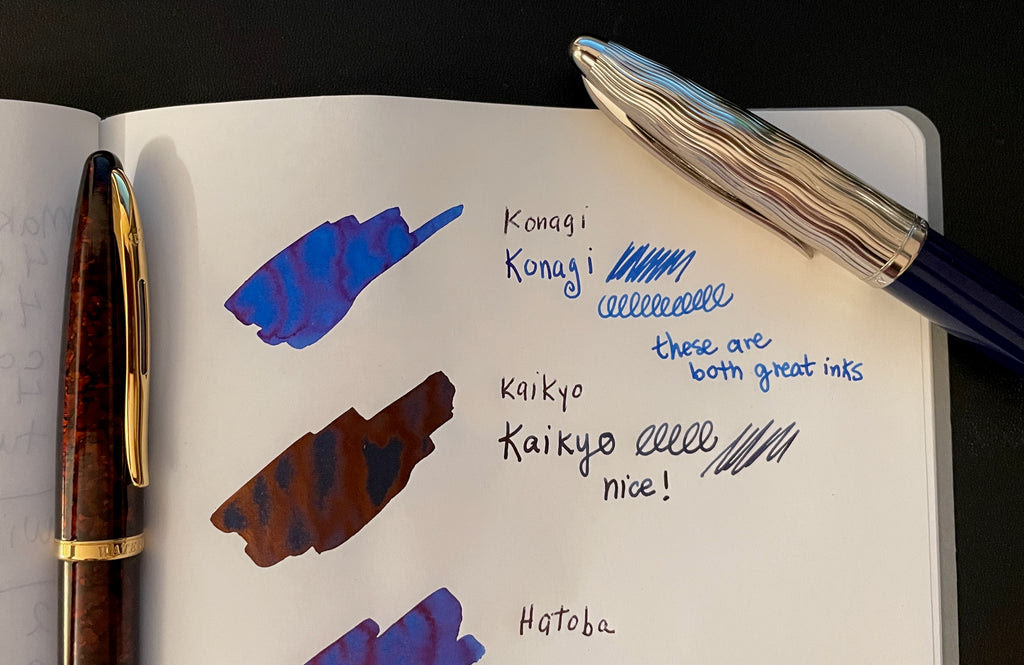 Konagi
Konagi
these are
both great inks
Kaikyo
Kaikyo
nice!
Hatoba